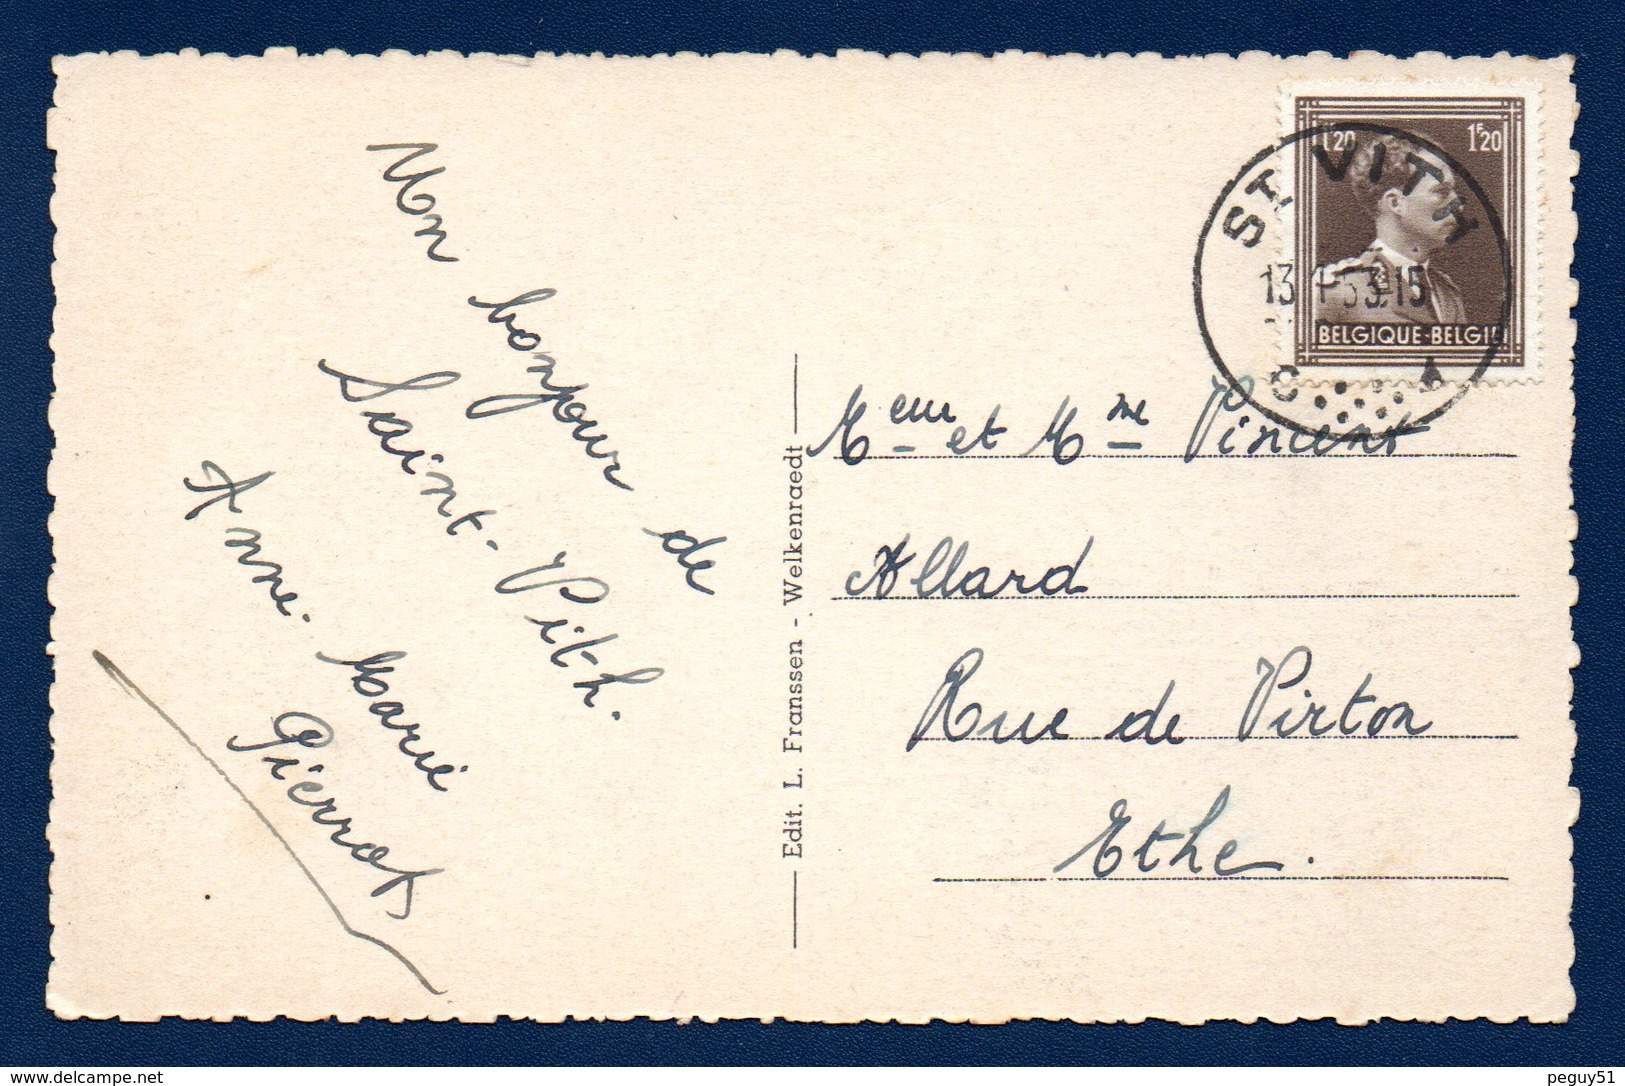 Mon bonjour de
Saint-Vith.
Anne-Marie
Pierrot
Edit. L. Franssen - Welkenraedt
1F20 1F20
BELGIQUE-BELGIE
ST VITH
13 1-53.15
Meur et Mme Vincent
Allard
Rue de Virton
Ethe.
delcampe.net
peguy51